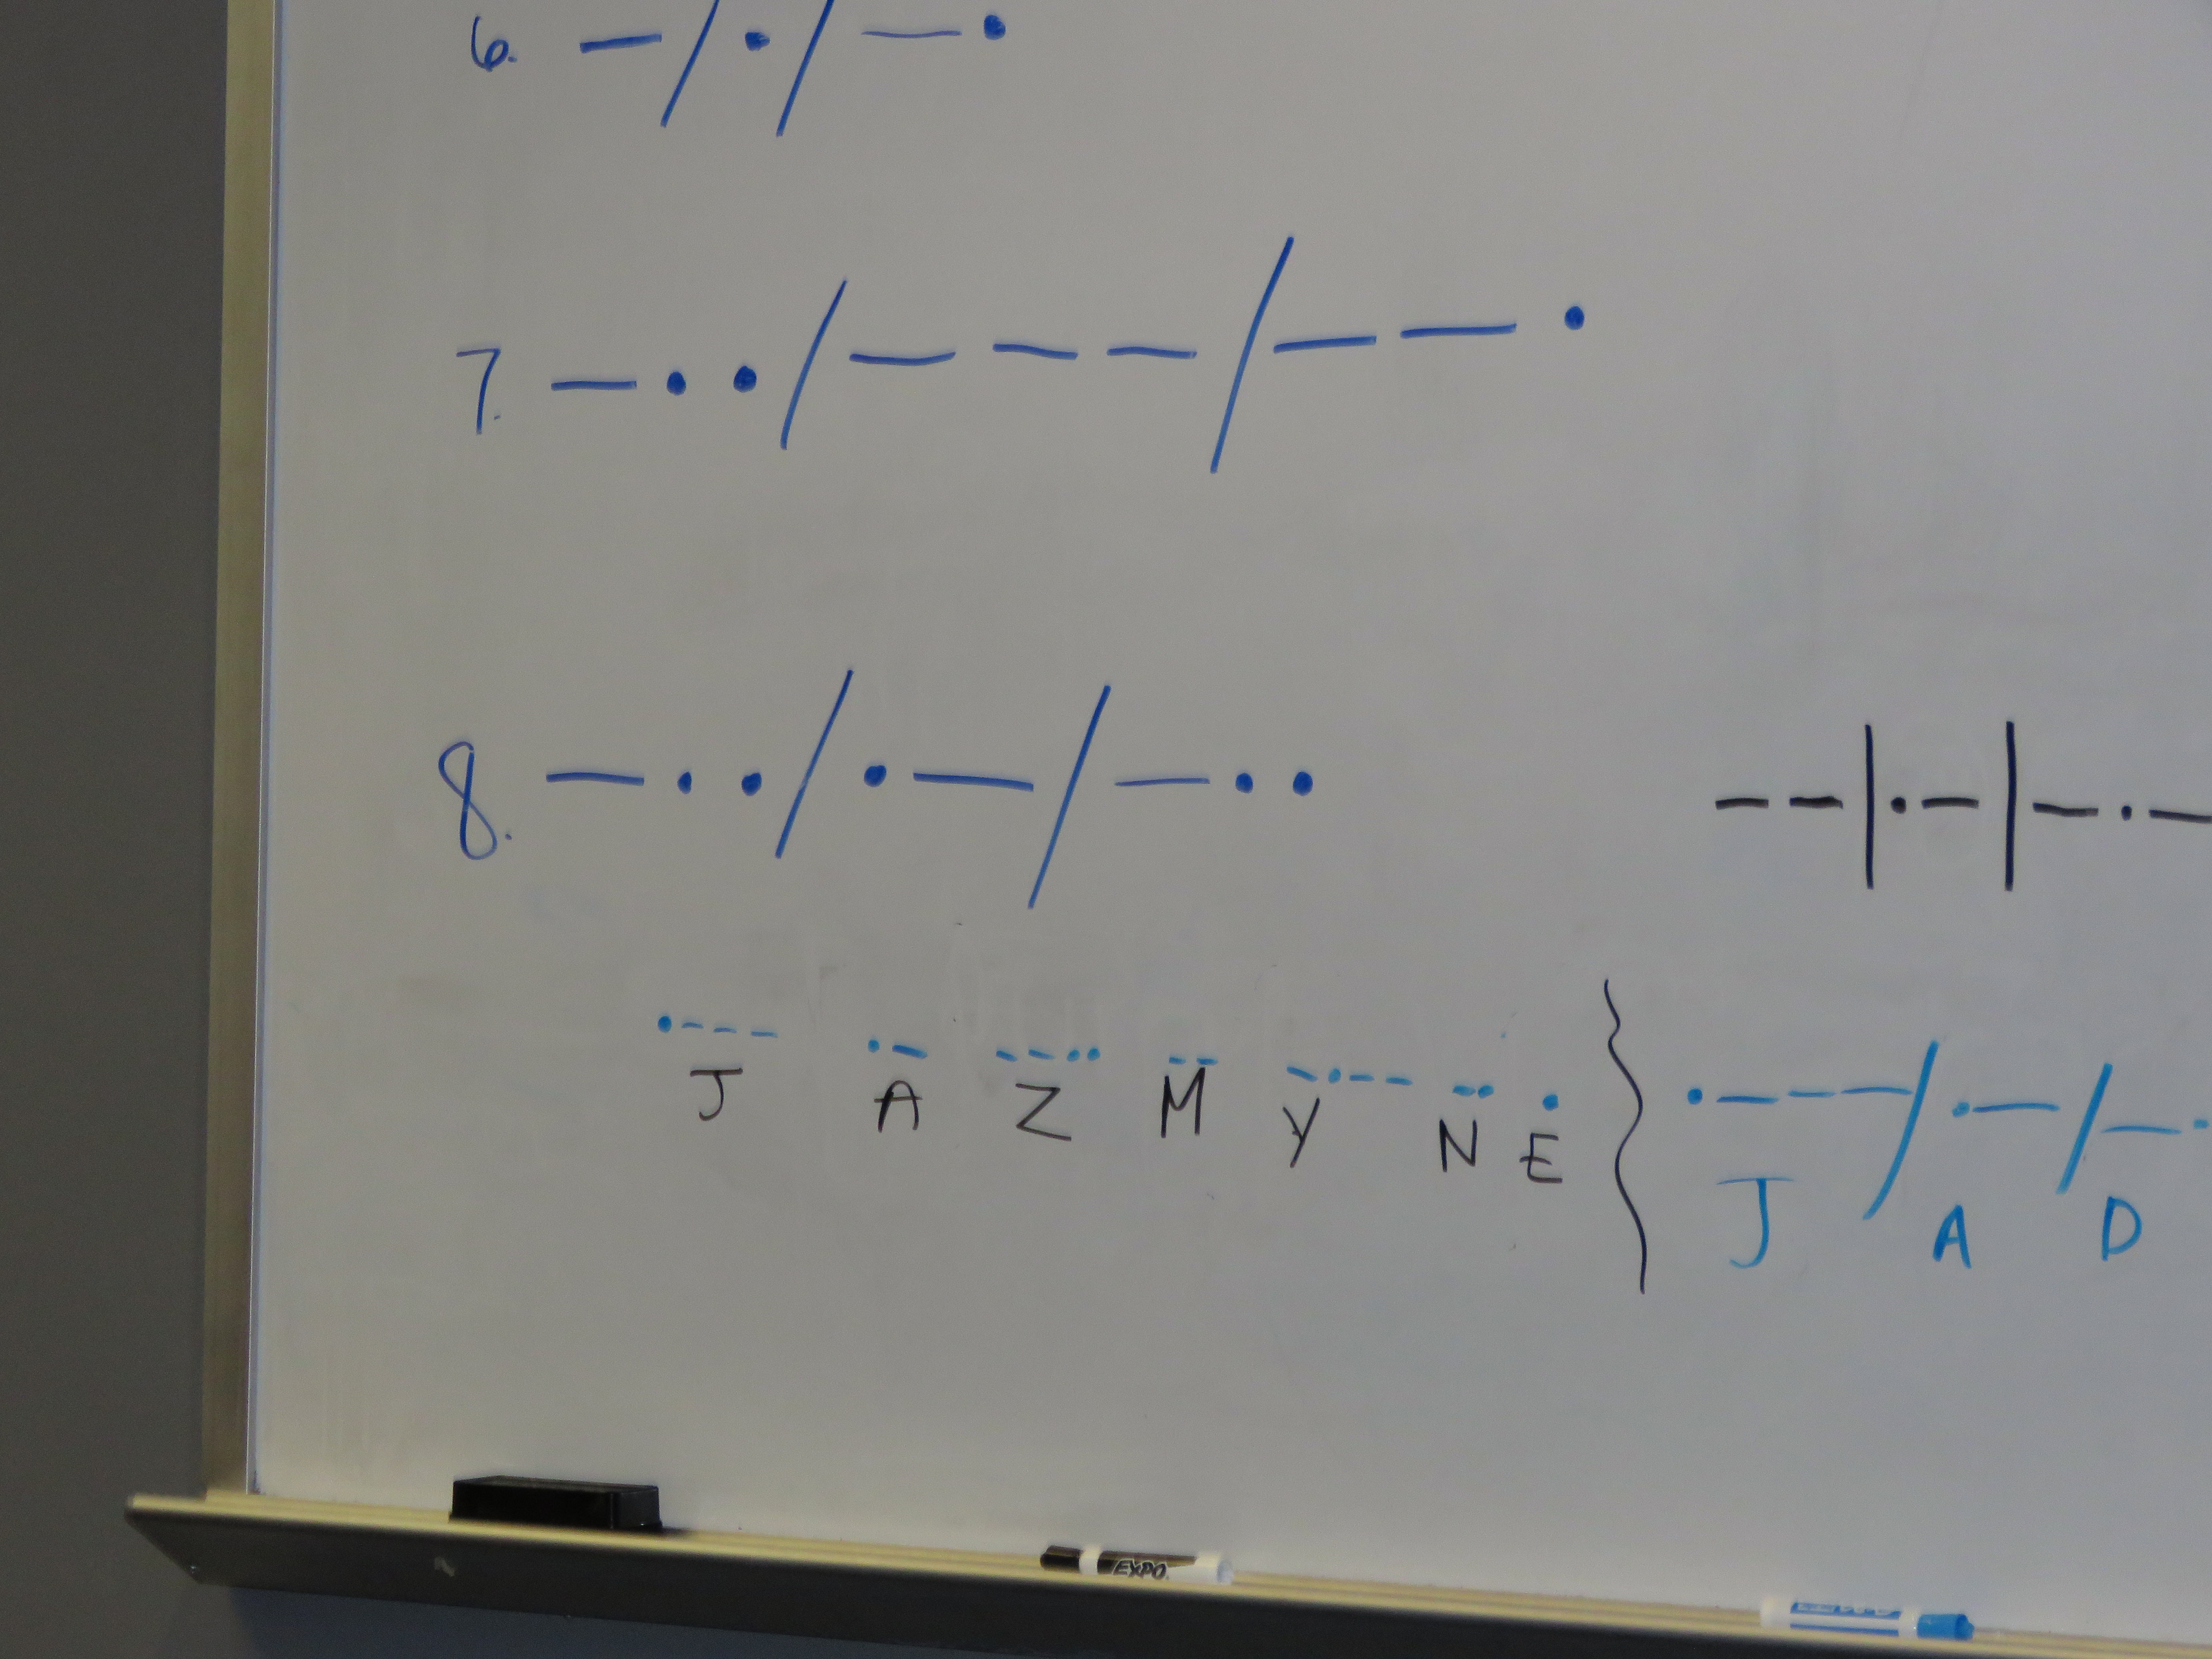 6. — / • / — •
7. — • • / — — — / — — •
8. — • • / • — / — • •
— — | • — | — • —
• — — —   • —   — — • •   — —   — • — —   — •   •
J A Z M Y N E
• — — — / • — / — •
J A D
EXPO